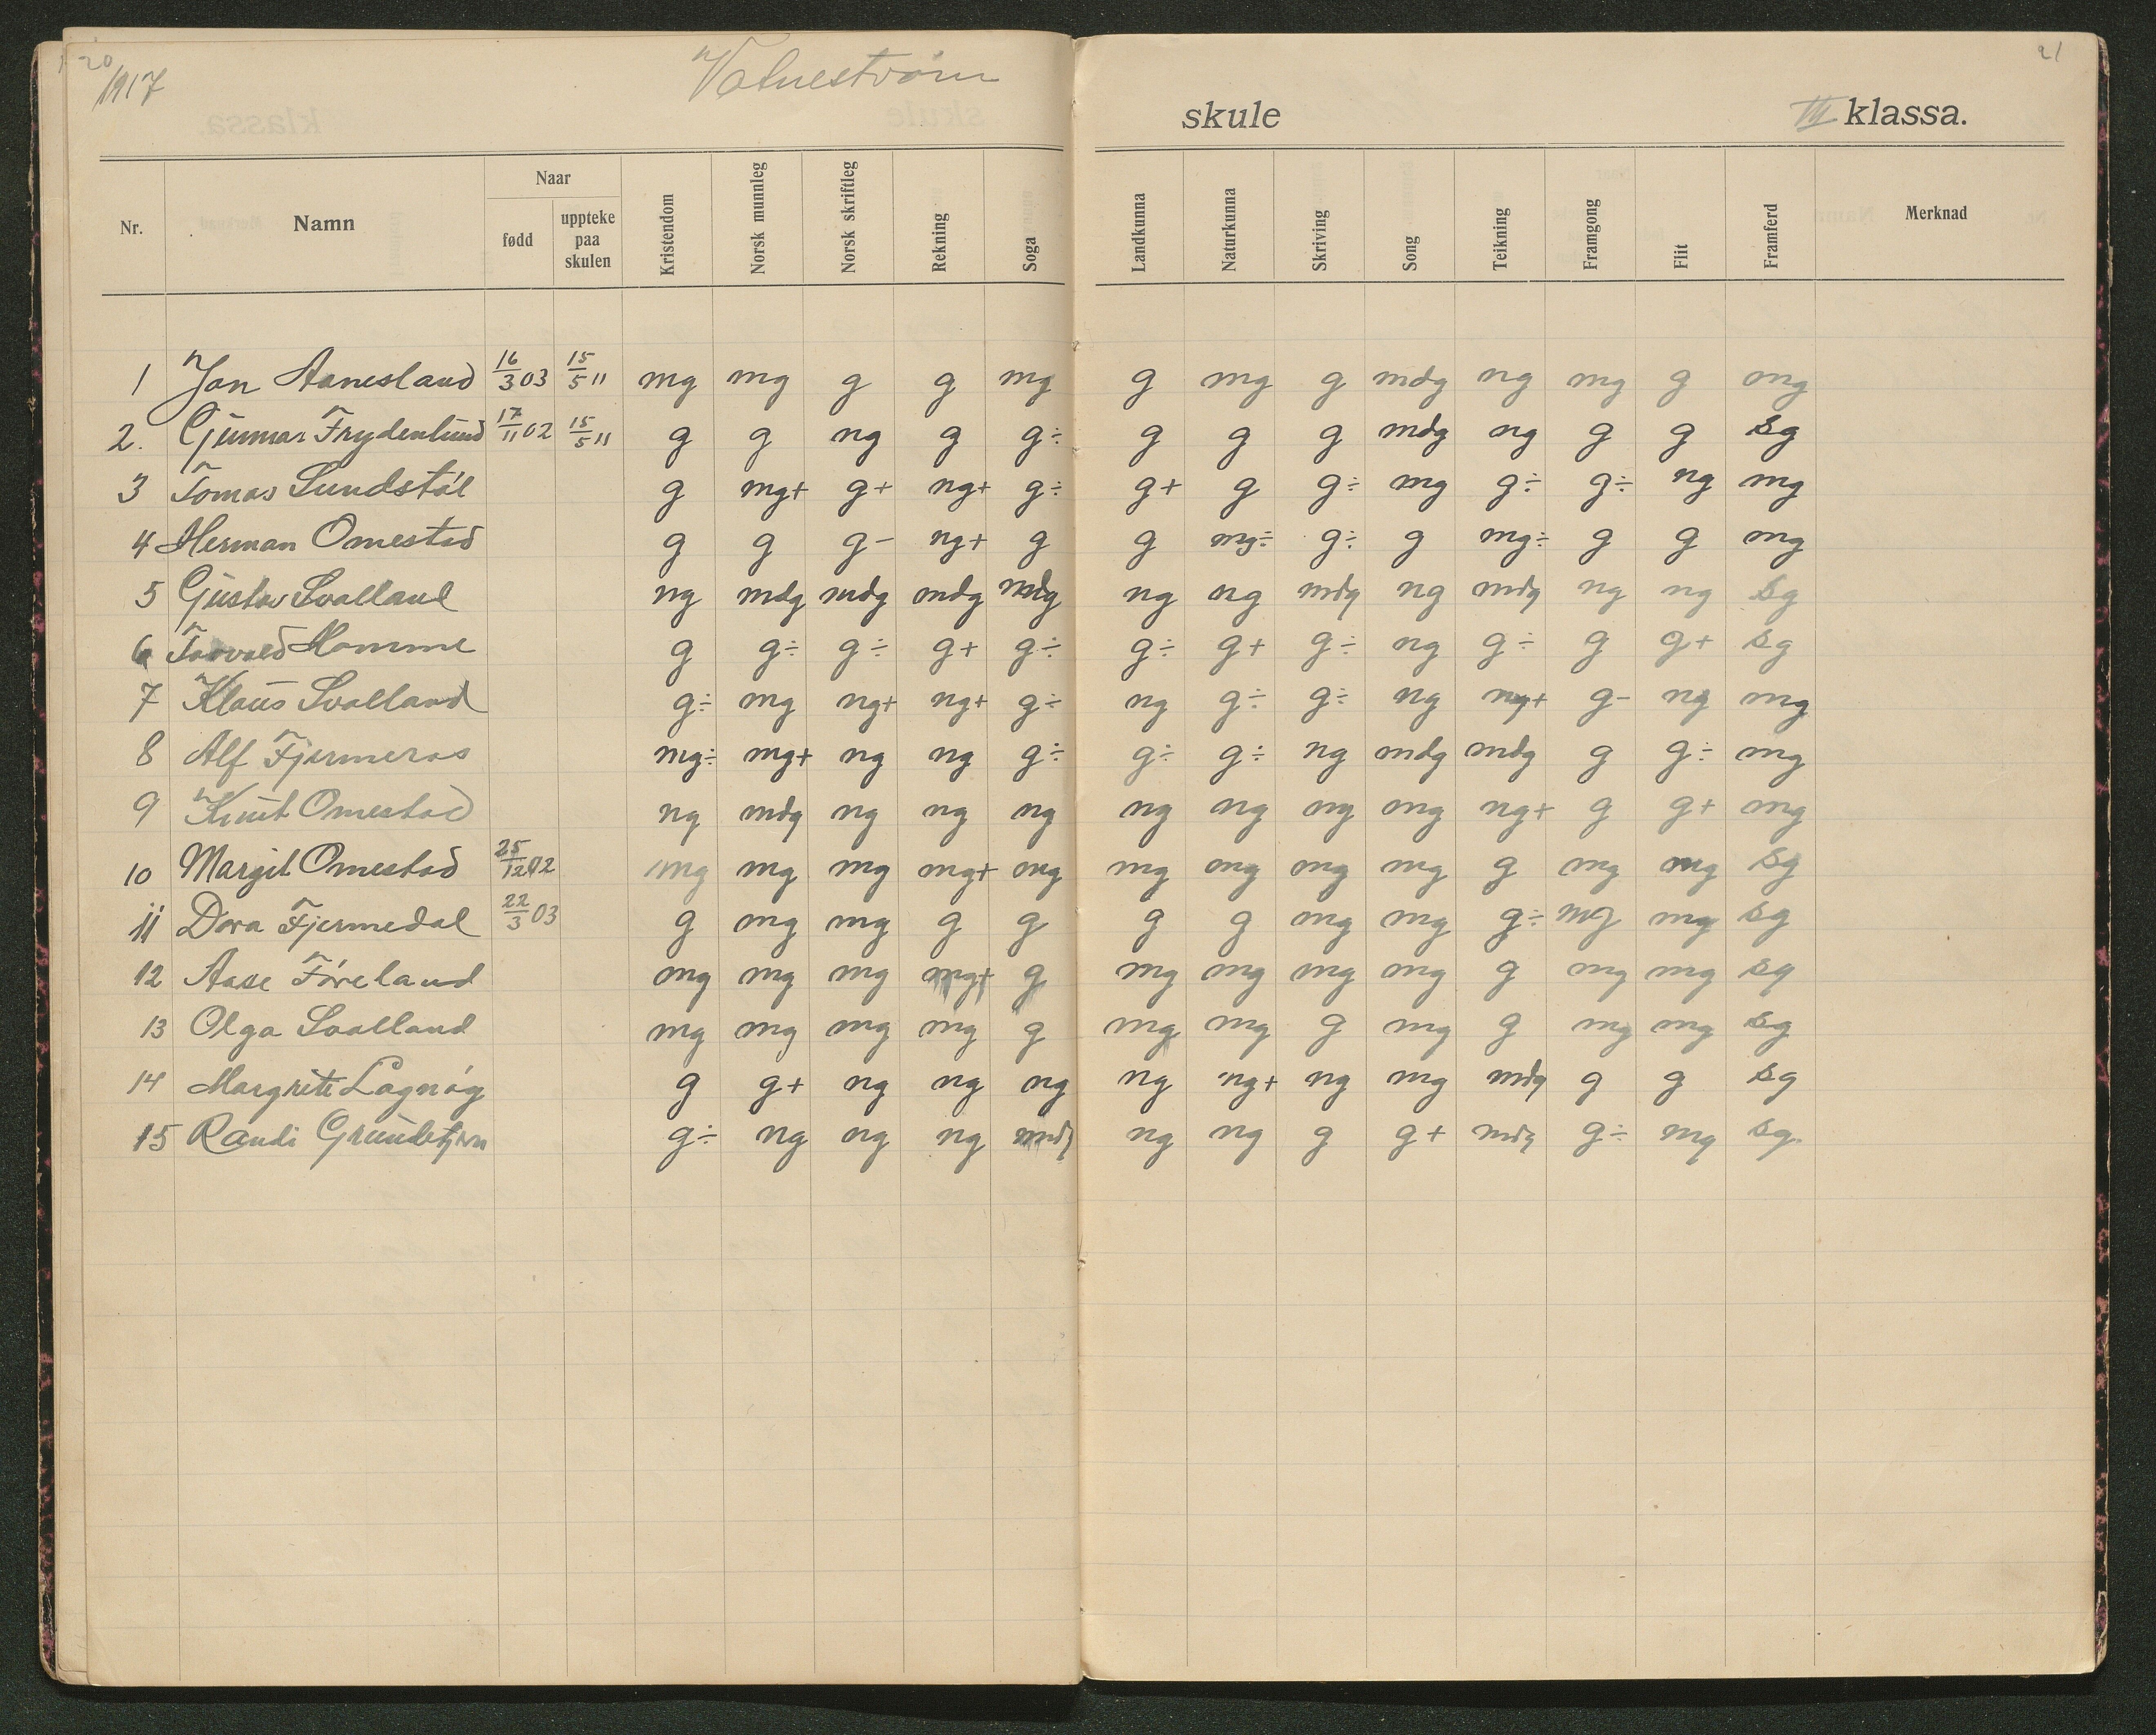 20 21
1917 Vatnestrøm skule III klassa.
Nr. Namn Naar fødd uppteke paa skulen Kristendom Norsk munnleg Norsk skriftleg Rekning Soga Landkunna Naturkunna Skriving Song Teikning Framgong Flit Framferd Merknad
1 Jon Aanesland 16/3 03 15/5 11 mg mg g g mg g mg g mdg ng mg g mg
2. Gunnar Frydenlund 17/11 02 15/5 11 g g ng g g÷ g g g mdg ng g g sg
3 Tomas Sundstøl g mg+ g+ ng+ g÷ g+ g g÷ mg g÷ g÷ ng mg
4 Herman Omestad g g g- ng+ g g mg÷ g÷ g mg÷ g g mg
5 Gustav Svalland ng mdg mdg mdg mdg ng ng mdg ng mdg ng ng sg
6 Torvald Homme g g÷ g÷ g+ g÷ g÷ g+ g÷ ng g÷ g g+ sg
7 Klaus Svalland g÷ mg ng+ ng+ g÷ ng g÷ g÷ ng ng+ g- ng mg
8 Alf Fjermeros mg÷ mg+ ng ng g÷ g÷ g÷ ng mdg mdg g g÷ mg
9 Knut Omestad ng mdg ng ng ng ng ng ng mg ng+ g g+ mg
10 Margit Omestad 25/12 02 mg mg mg mg+ mg mg mg mg mg g mg mg sg
11 Dora Fjermedal 22/3 03 g mg mg g g g g mg mg g÷ mg mg sg
12 Aase Føreland mg mg mg mg+ g mg mg mg mg g mg mg sg
13 Olga Svalland mg mg mg mg g mg mg g mg g mg mg sg
14 Margrete Lognøy g g+ ng ng ng ng ng+ ng mg mdg g g sg
15 Randi Grundetjern g÷ ng ng ng mdg ng ng g g+ mdg g÷ mg sg.